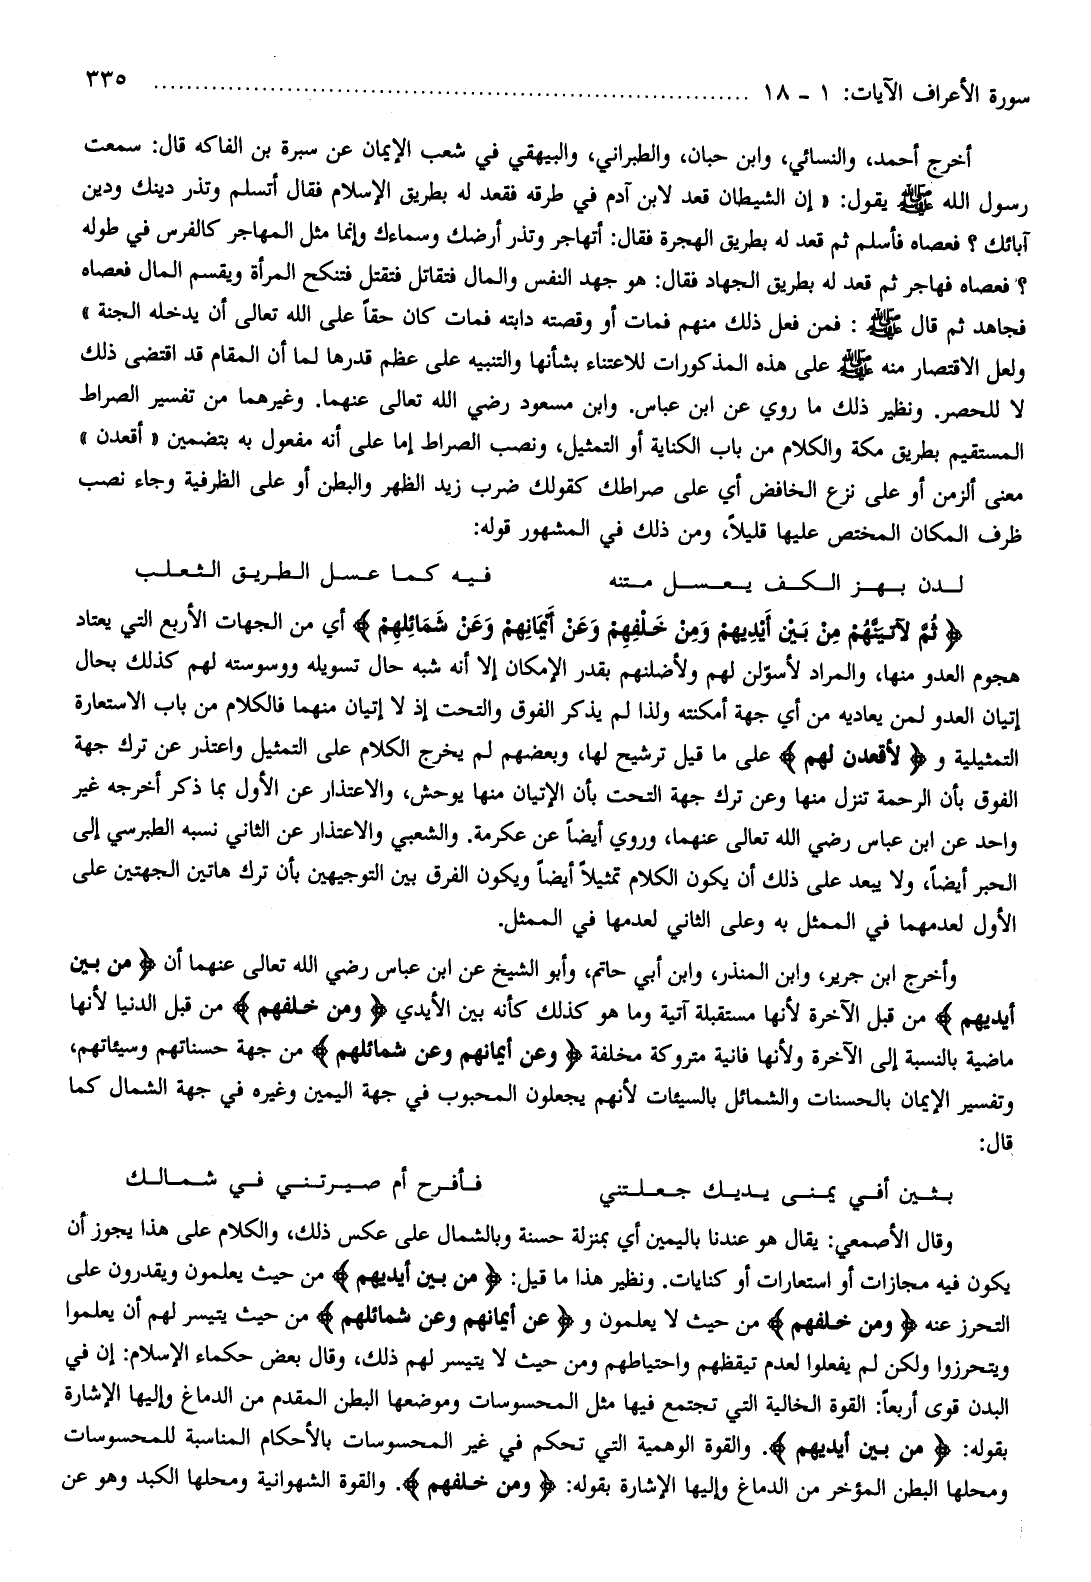 سورة الأعراف الآيات: ١ - ١٨ ........................................................ ٣٣٥
أخرج أحمد، والنسائي، وابن حبان، والطبراني، والبيهقي في شعب الإيمان عن سبرة بن الفاكه قال: سمعت
رسول الله ﷺ يقول: « إن الشيطان قعد لابن آدم في طرقه فقعد له بطريق الإسلام فقال أتسلم وتذر دينك ودين
آبائك ؟ فعصاه فأسلم ثم قعد له بطريق الهجرة فقال: أتهاجر وتذر أرضك وسماءك وإنما مثل المهاجر كالفرس في طوله
؟ فعصاه فهاجر ثم قعد له بطريق الجهاد فقال: هو جهد النفس والمال فتقاتل فتقتل فتنكح المرأة ويقسم المال فعصاه
فجاهد ثم قال ﷺ : فمن فعل ذلك منهم فمات أو وقصته دابته فمات كان حقاً على الله تعالى أن يدخله الجنة »
ولعل الاقتصار منه ﷺ على هذه المذكورات للاعتناء بشأنها والتنبيه على عظم قدرها لما أن المقام قد اقتضى ذلك
لا للحصر. ونظير ذلك ما روي عن ابن عباس. وابن مسعود رضي الله تعالى عنهما. وغيرهما من تفسير الصراط
المستقيم بطريق مكة والكلام من باب الكناية أو التمثيل، ونصب الصراط إما على أنه مفعول به بتضمين « أقعدن »
معنى ألزمن أو على نزع الخافض أي على صراطك كقولك ضرب زيد الظهر والبطن أو على الظرفية وجاء نصب
ظرف المكان المختص عليها قليلاً، ومن ذلك في المشهور قوله:
لدن بهز الكف يعسل متنه فيه كما عسل الطريق الثعلب
﴿ ثُمَّ لآتِيَنَّهُمْ مِنْ بَيْنِ أَيْدِيهِمْ وَمِنْ خَلْفِهِمْ وَعَنْ أَيْمَانِهِمْ وَعَنْ شَمَائِلِهِمْ ﴾ أي من الجهات الأربع التي يعتاد
هجوم العدو منها، والمراد لأسوّلن لهم ولأضلنهم بقدر الإمكان إلا أنه شبه حال تسويله ووسوسته لهم كذلك بحال
إتيان العدو لمن يعاديه من أي جهة أمكنته ولذا لم يذكر الفوق والتحت إذ لا إتيان منهما فالكلام من باب الاستعارة
التمثيلية و ﴿ لأقعدن لهم ﴾ على ما قيل ترشيح لها، وبعضهم لم يخرج الكلام على التمثيل واعتذر عن ترك جهة
الفوق بأن الرحمة تنزل منها وعن ترك جهة التحت بأن الإتيان منها يوحش، والاعتذار عن الأول بما ذكر أخرجه غير
واحد عن ابن عباس رضي الله تعالى عنهما، وروي أيضاً عن عكرمة. والشعبي والاعتذار عن الثاني نسبه الطبرسي إلى
الحبر أيضاً، ولا يبعد على ذلك أن يكون الكلام تمثيلاً أيضاً ويكون الفرق بين التوجيهين بأن ترك هاتين الجهتين على
الأول لعدمهما في الممثل به وعلى الثاني لعدمها في الممثل.
وأخرج ابن جرير، وابن المنذر، وابن أبي حاتم، وأبو الشيخ عن ابن عباس رضي الله تعالى عنهما أن ﴿ من بين
أيديهم ﴾ من قبل الآخرة لأنها مستقبلة آتية وما هو كذلك كأنه بين الأيدي ﴿ ومن خلفهم ﴾ من قبل الدنيا لأنها
ماضية بالنسبة إلى الآخرة ولأنها فانية متروكة مخلفة ﴿ وعن أيمانهم وعن شمائلهم ﴾ من جهة حسناتهم وسيئاتهم،
وتفسير الإيمان بالحسنات والشمائل بالسيئات لأنهم يجعلون المحبوب في جهة اليمين وغيره في جهة الشمال كما
قال:
بثين أفي يمنى يديك جعلتني فأفرح أم صيرتني في شمالك
وقال الأصمعي: يقال هو عندنا باليمين أي بمنزلة حسنة وبالشمال على عكس ذلك، والكلام على هذا يجوز أن
يكون فيه مجازات أو استعارات أو كنايات. ونظير هذا ما قيل: ﴿ من بين أيديهم ﴾ من حيث يعلمون ويقدرون على
التحرز عنه ﴿ ومن خلفهم ﴾ من حيث لا يعلمون و ﴿ عن أيمانهم وعن شمائلهم ﴾ من حيث يتيسر لهم أن يعلموا
ويتحرزوا ولكن لم يفعلوا لعدم تيقظهم واحتياطهم ومن حيث لا يتيسر لهم ذلك، وقال بعض حكماء الإسلام: إن في
البدن قوى أربعاً: القوة الخالية التي تجتمع فيها مثل المحسوسات وموضعها البطن المقدم من الدماغ وإليها الإشارة
بقوله: ﴿ من بين أيديهم ﴾. والقوة الوهمية التي تحكم في غير المحسوسات بالأحكام المناسبة للمحسوسات
ومحلها البطن المؤخر من الدماغ وإليها الإشارة بقوله: ﴿ ومن خلفهم ﴾. والقوة الشهوانية ومحلها الكبد وهو عن